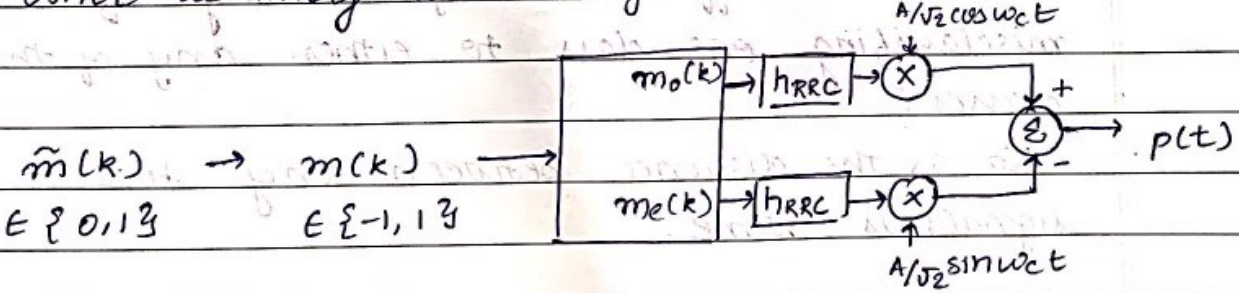 A/√2 cos ωc t
m₀(k) → hRRC → × +
m̃(k) → m(k) → Σ → p(t)
∈ {0,1} ∈ {-1,1} me(k) → hRRC → × -
A/√2 sin ωc t